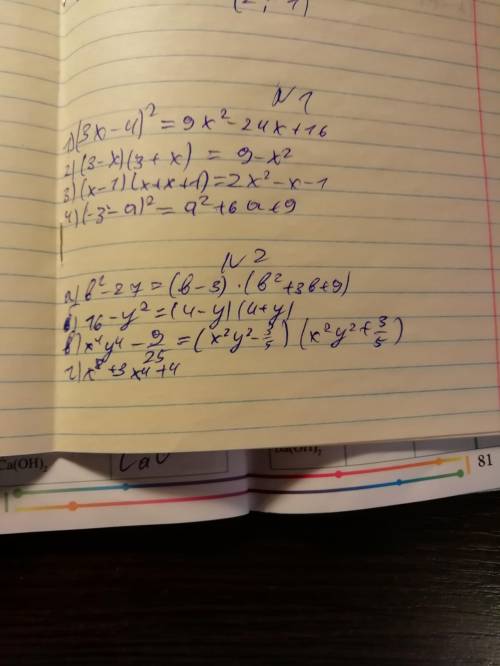 N 1
1) (3x-4)² = 9x²-24x+16
2) (3-x)(3+x) = 9-x²
3) (x-1)(x+x+1)=2x²-x-1
4) (-3-a)² = a²+6a+9
N 2
а) b²-27=(b-3)·(b²+3b+9)
б) 16-y²=(4-y)(4+y)
в) x⁴y⁴-9/25=(x²y²-3/5)(x²y²+3/5)
г) x⁸+3x⁴+4
Ca(OH)₂
81